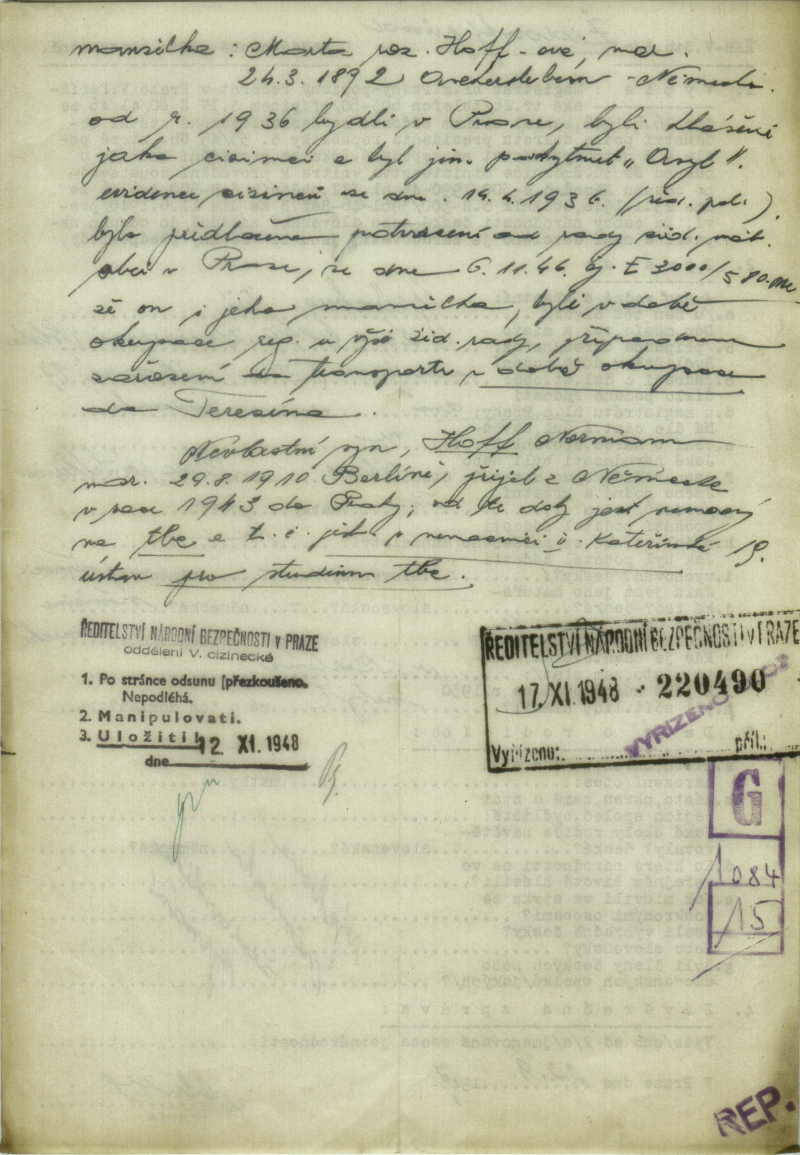 manželka : Marta roz. Hoff-ová, nar.
24.3. 1892 - Německo.
od r. 1936 bydlí v Praze, byli hlášeni
jako cizinci a byl jim poskytnut „Asyl".
evidence cizinců ze dne 14.4.1936. (řed. pol.).
byla předložena potvrzení od rady žid. náb.
obce v Praze, ze dne 6.11.46. čj. E 3000/580
že on i jeho manželka, byli v době
okupace reg. u výše žid. rady,
zařazeni do transportu v době okupace
do Terezína.
Nevlastní syn, Hoff Normann
nar. 29.8.1910 Berlíně, přijel z Německa
v roce 1943 do Prahy, od té doby jest nemocný
na tbc a t. č. jest v nemocnici v Kateřinské 19.
ústav pro studium tbc.
ŘEDITELSTVÍ NÁRODNÍ BEZPEČNOSTI V PRAZE
oddělení V. cizinecké
1. Po stránce odsunu přezkoušeno.
Nepodléhá.
2. Manipulovati.
3. Uložiti!
dne 12 XI. 1948
ŘEDITELSTVÍ NÁRODNÍ BEZPEČNOSTI V PRAZE
17. XI 1948 - 220490
VYŘÍZENO
Vyřízeno: příl.:
G
1084
15
REP.